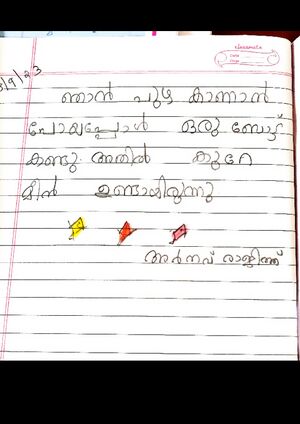 classmate
Date
Page
5/9/23
ഞാൻ പുഴ കാണാൻ
പോയപ്പോൾ ഒരു ബോട്ട്
കണ്ടു. അതിൽ കുറേ
മീൻ ഉണ്ടായിരുന്നു
അർനവ് രാജിത്ത്